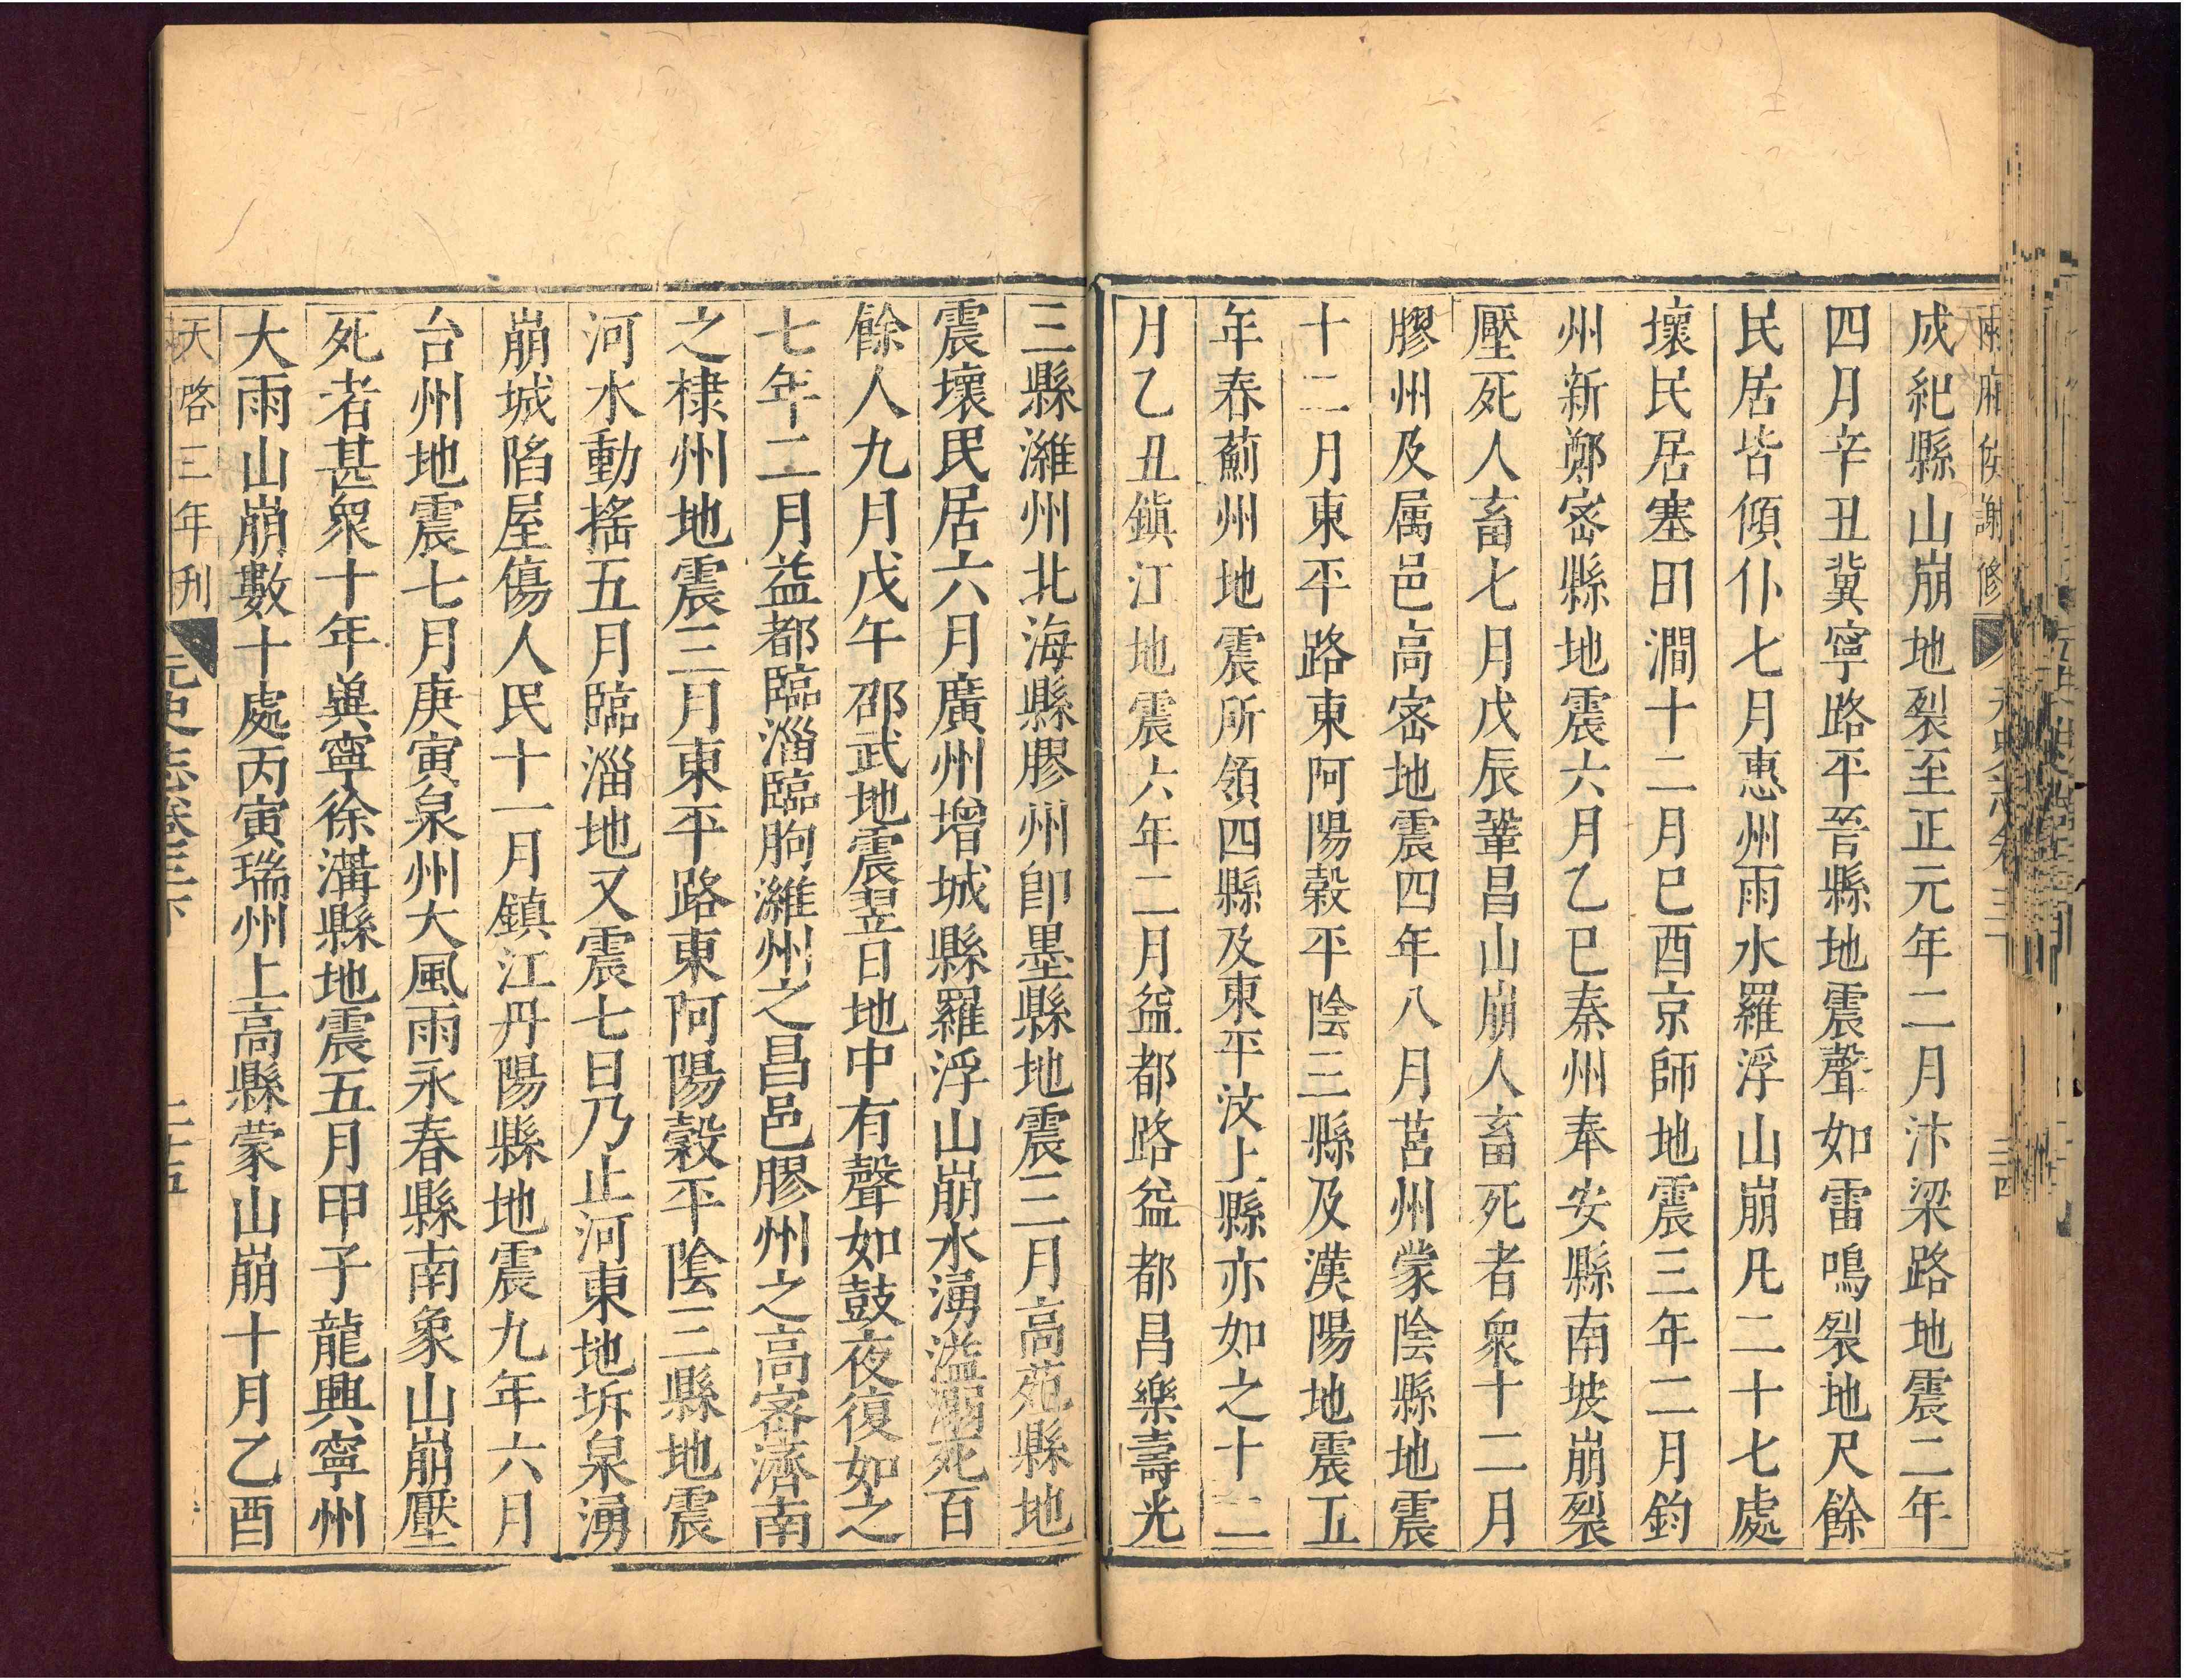 兩府侯謝修 元史志卷三下 二四
成紀縣山崩地裂至正元年二月汴梁路地震二年
四月辛丑冀寧路平晉縣地震聲如雷鳴裂地尺餘
民居皆傾仆七月惠州雨水羅浮山崩凡二十七處
壞民居塞田澗十二月巳酉京師地震三年二月鈞
州新鄭密縣地震六月乙巳秦州奉安縣南坡崩裂
壓死人畜七月戊辰鞏昌山崩人畜死者衆十二月
膠州及属邑高密地震四年八月莒州蒙陰縣地震
十二月東平路東阿陽穀平陰三縣及漢陽地震五
年春薊州地震所領四縣及東平汶上縣亦如之十二
月乙丑鎮江地震六年二月益都路益都昌樂壽光
三縣濰州北海縣膠州卽墨縣地震三月高苑縣地
震壞民居六月廣州增城縣羅浮山崩水湧溢溺死百
餘人九月戊午邵武地震翌日地中有聲如鼓夜復如之
七年二月益都臨淄臨朐濰州之昌邑膠州之高密濟南
之棣州地震三月東平路東阿陽穀平陰三縣地震
河水動搖五月臨淄地又震七日乃止河東地坼泉湧
崩城陷屋傷人民十一月鎮江丹陽縣地震九年六月
台州地震七月庚寅泉州大風雨永春縣南象山崩壓
死者甚衆十年兾寧徐溝縣地震五月甲子龍興寧州
大雨山崩數十處丙寅瑞州上高縣蒙山崩十月乙酉
天啓三年刊 元史志卷三下 二十五